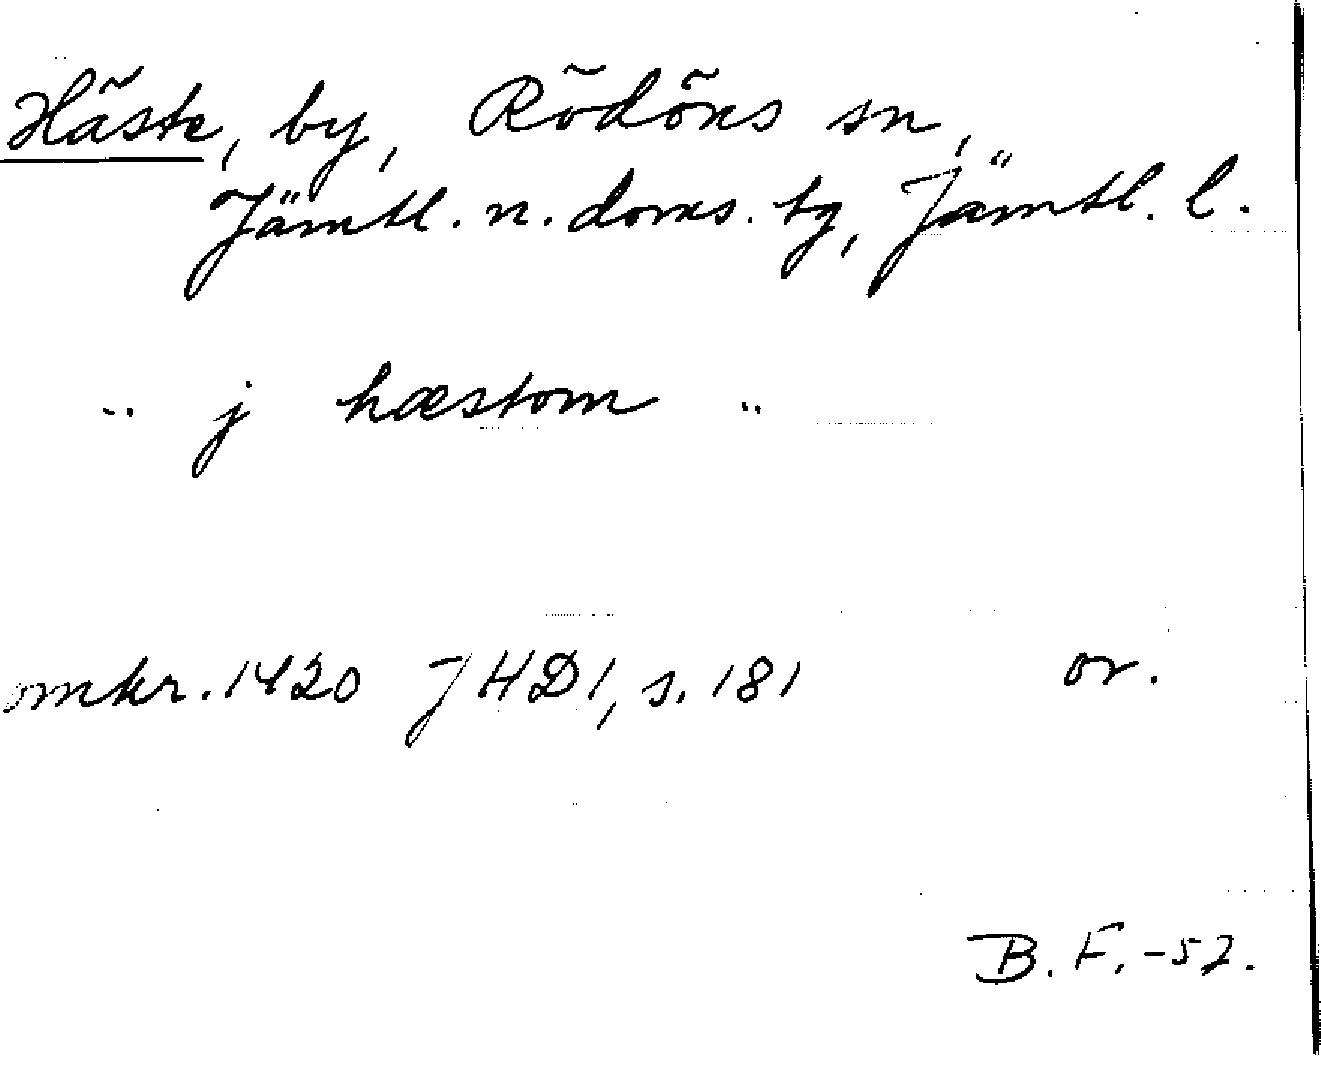 Häste, by, Rödöns sn,
Jämtl. n. doms. tg, Jämtl. l.
" j hæstom "
omkr. 1420 JHD1, s. 181 or.
B. F. -52.